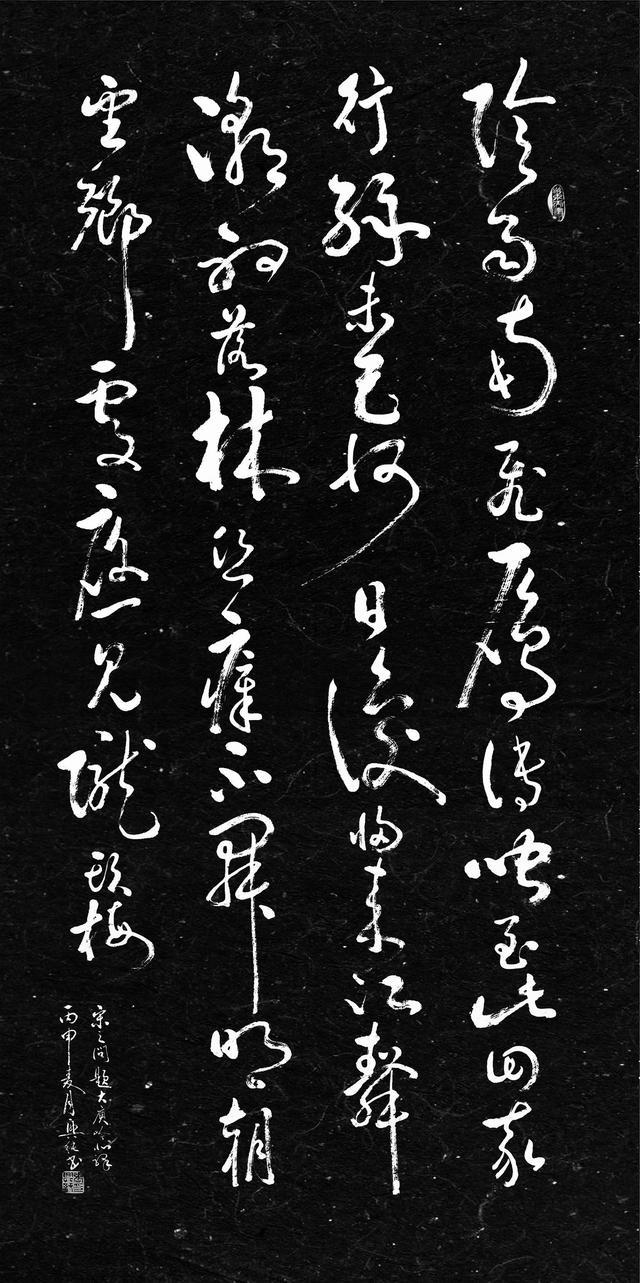 陽月南飛雁傳聞至此回我
行殊未已何日復歸來江靜
潮初落林昏瘴不開明朝
望鄉處應見隴頭梅
宋之問題大庾嶺北驛
丙申夏月興書